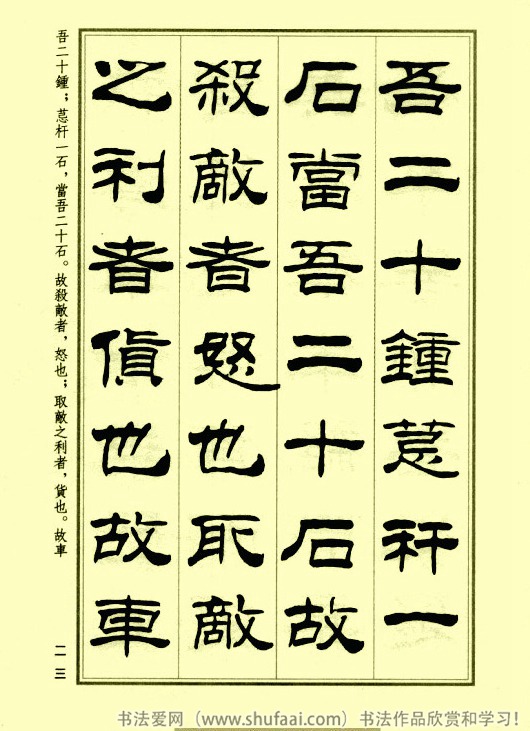 吾二十鍾萁秆一
石當吾二十石故
殺敵者怒也取敵
之利者貨也故車
吾二十鍾；萁杆一石，當吾二十石。故殺敵者，怒也；取敵之利者，貨也。故車
二三
书法爱网（www.shufaai.com）书法作品欣赏和学习！